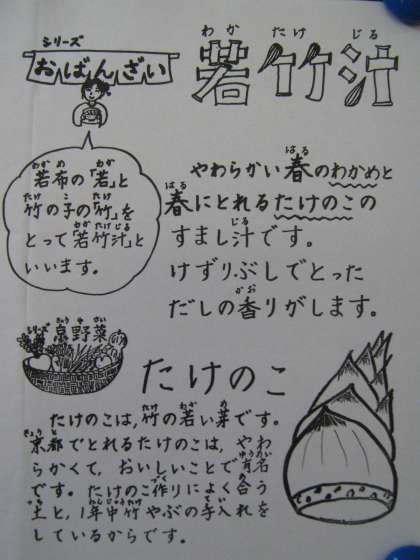 シリーズ
おばんざい
わか たけ じる
若竹汁
わかめ わか
若布の「若」と
たけ こ たけ
竹の子の「竹」を
わかたけじる
とって「若竹汁」と
いいます。
はる
やわらかい春のわかめと
はる
春にとれるたけのこの
じる
すまし汁です。
けずりぶしでとった
かお
だしの香りがします。
シリーズ
きょう や さい
京野菜
たけのこ
たけ わか め
たけのこは,竹の若い芽です。
きょう と
京都でとれるたけのこは,やわ
ゆうめい
らかくて,おいしいことで有名
づく あ
です。たけのこ作りによく合う
つち ねんじゅうたけ てい
土と,1年中竹やぶの手入れを
しているからです。